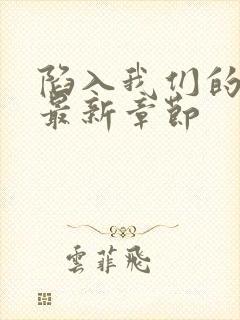 陷入我们的
最新章节
雲菲飛